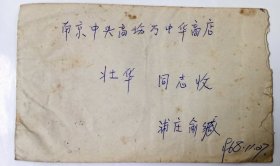 南京中央商场万中华商店
壮华 同志收
浦庄俞缄
1968.11.27